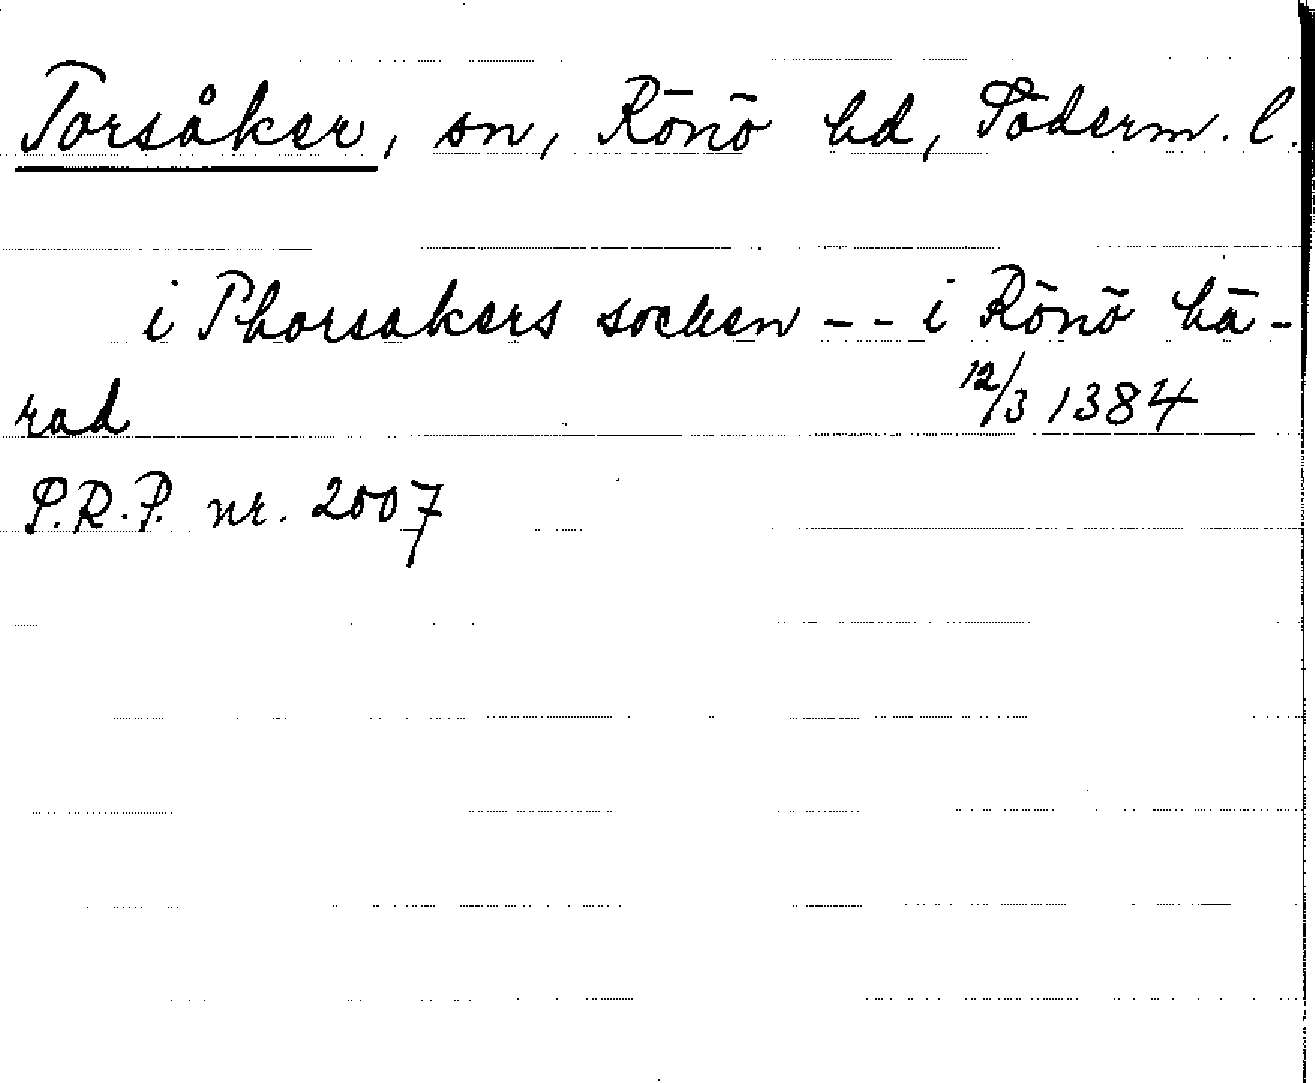 Torsåker, sn, Rönö hd, Söderm. l.
i Thorsakers socken -- i Rönö hä-
rad 12/3 1384
S.R.P. nr. 2007